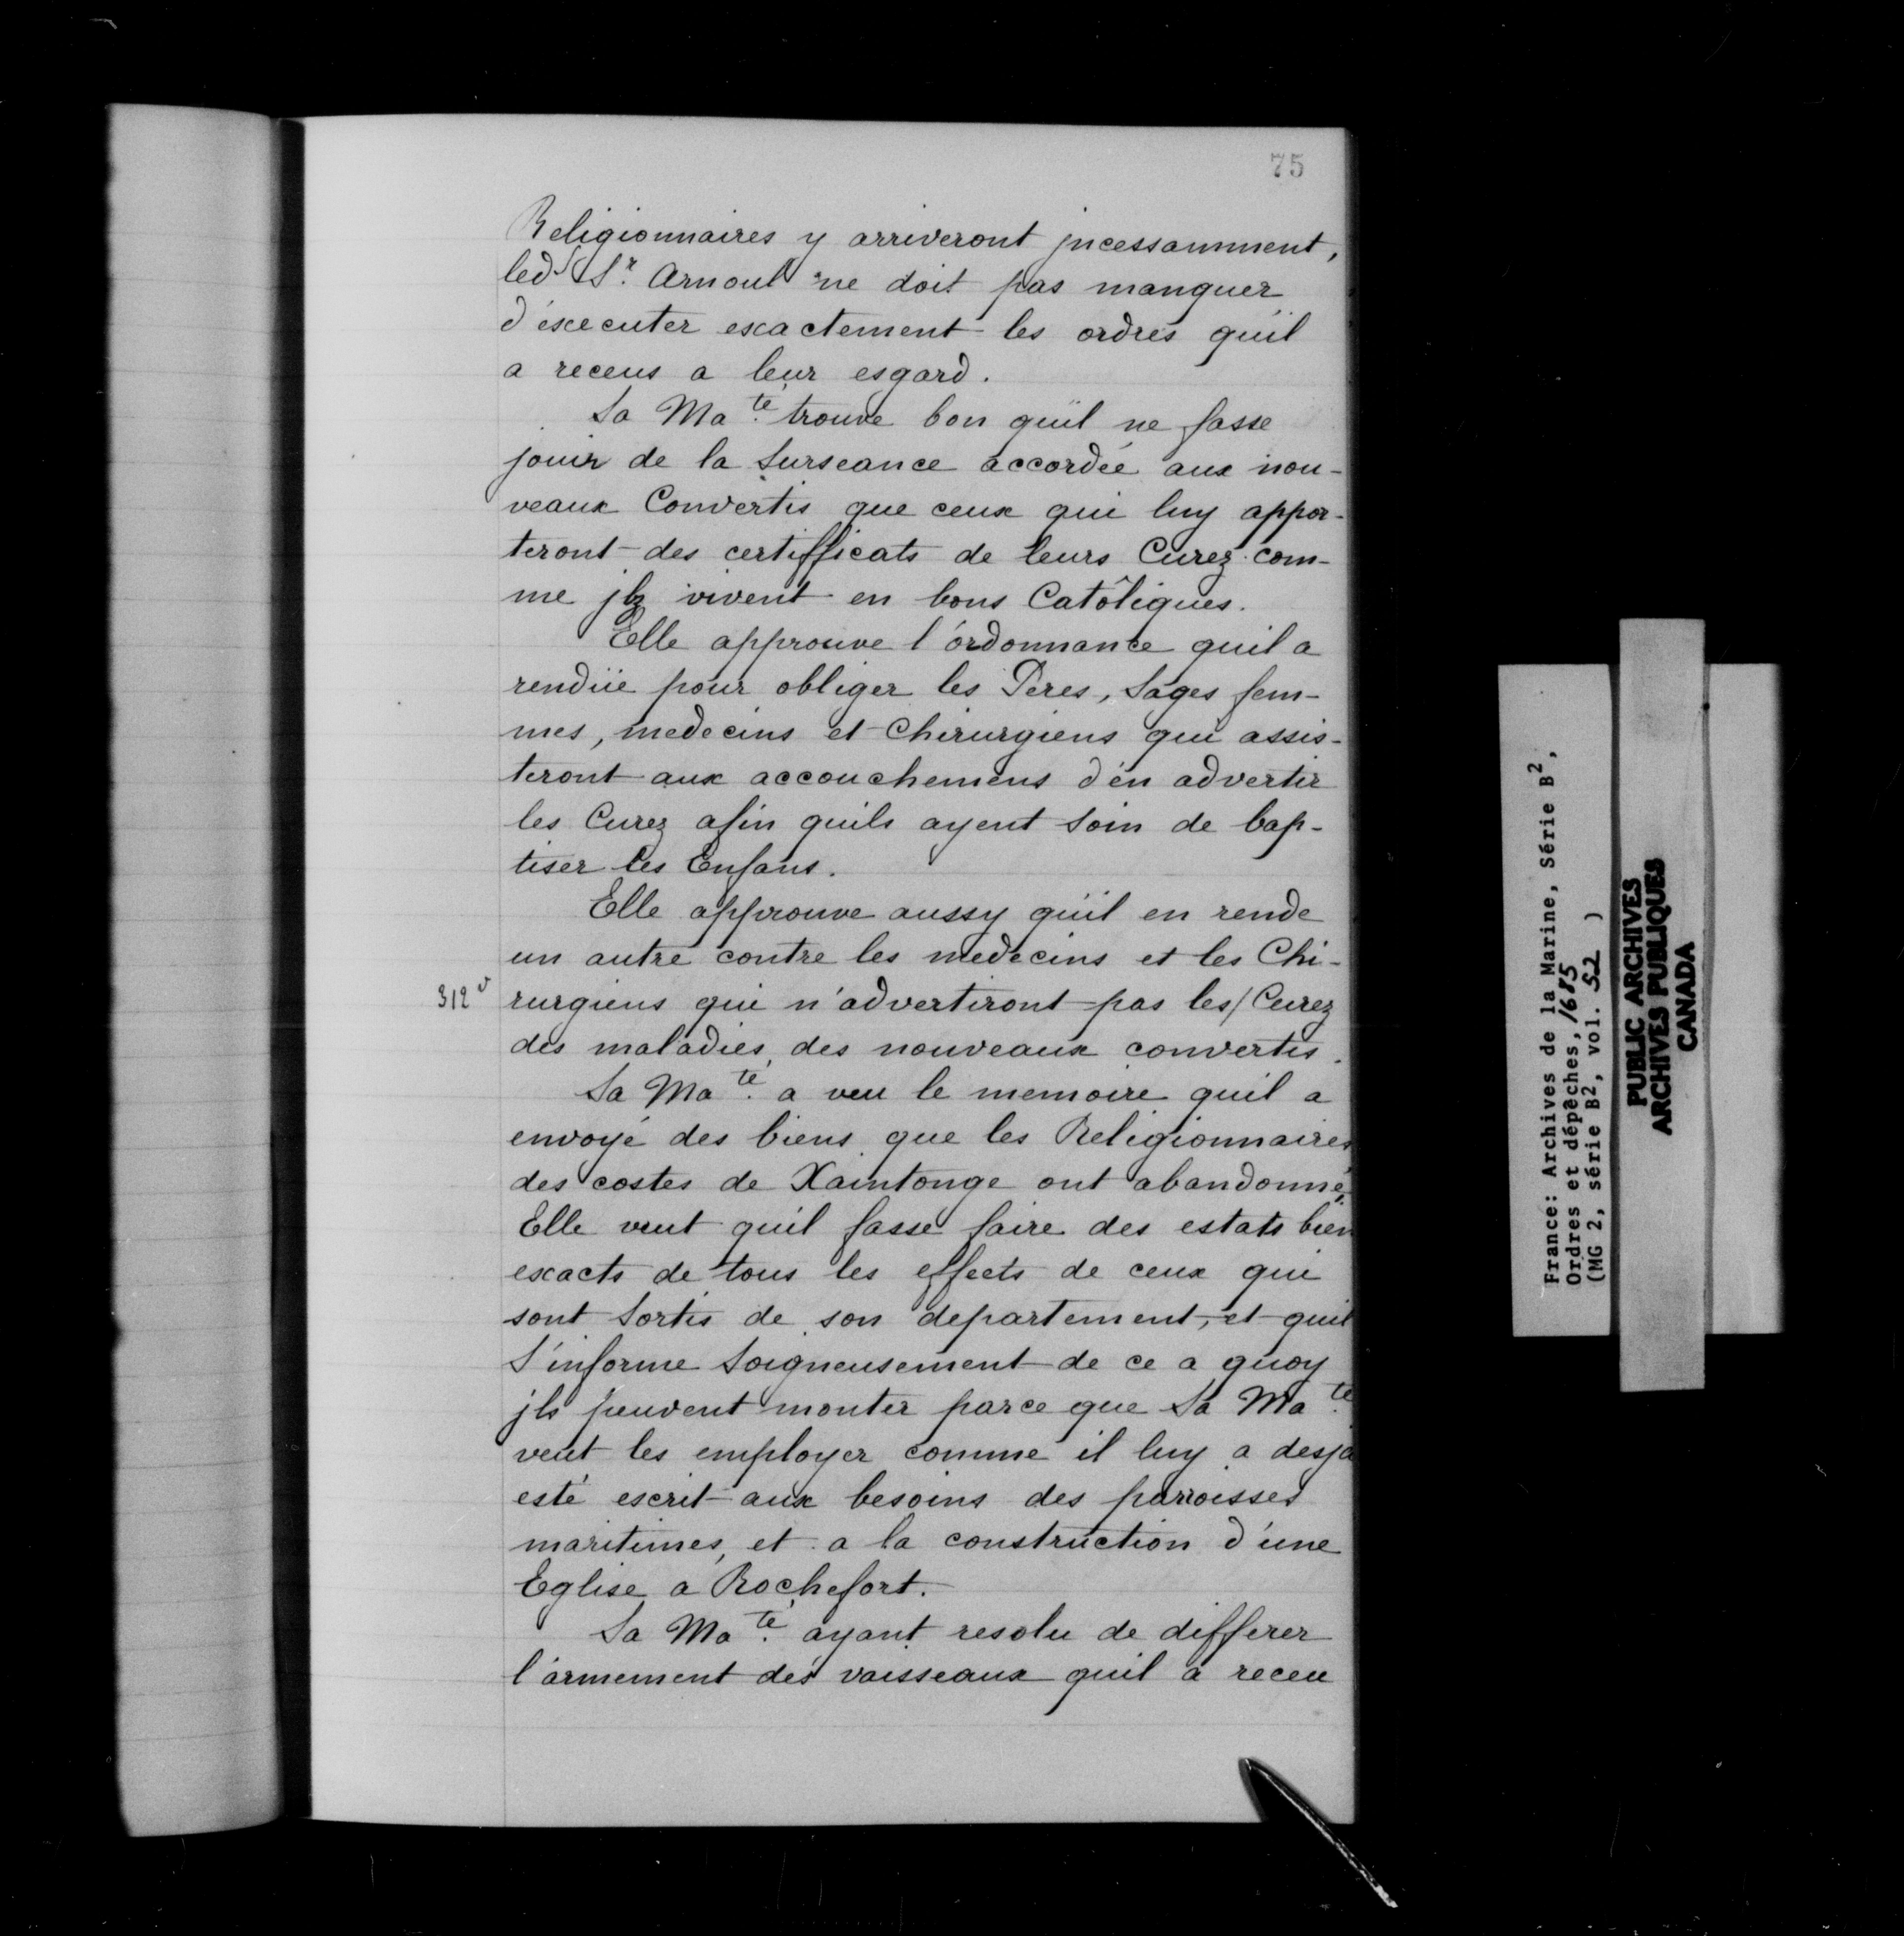 75
Religionnaires y arriveront jncessamment,
led. Sr. Arnoul ne doit pas manquer
d'éxecuter exactement les ordres quil
a receus a leur esgard.
Sa Ma.té trouve bon quil ne fasse
jouir de la surseance accordée aux nou-
veaux Convertis que ceux qui luy appor-
teront des certifficats de leurs Curez com-
me jlz vivent en bons Catôliques.
Elle approuve l'ordonnance quil a
rendüe pour obliger les Peres, Sages fem-
mes, medecins et Chirurgiens qui assis-
teront aux accouchemens d'en advertir
les Curez afin quils ayent soin de bap-
tiser les Enfans.
Elle approuve aussy quil en rende
un autre contre les medecins et les Chi-
312 v rurgiens qui n'advertiront pas les/Curez
des maladies des nouveaux convertis.
Sa Ma.té a veu le memoire quil a
envoyé des biens que les Religionnaires
des costes de Xaintonge ont abandonné,
Elle veut quil fasse faire des estats bien
exacts de tous les effects de ceux qui
sont sortis de son departement, et quil
s'informe soigneusement de ce a quoy
jls peuvent monter parce que Sa Ma.té
veut les employer comme il luy a desja
esté escrit aux besoins des parroisses
maritimes, et a la construction d'une
Eglise a Rochefort.
Sa Ma.té ayant resolu de differer
l'armement des vaisseaux quil a receu
France: Archives de la Marine, Série B2,
Ordres et dépêches, 1685
(MG 2, série B2, vol. 52 )
PUBLIC ARCHIVES
ARCHIVES PUBLIQUES
CANADA